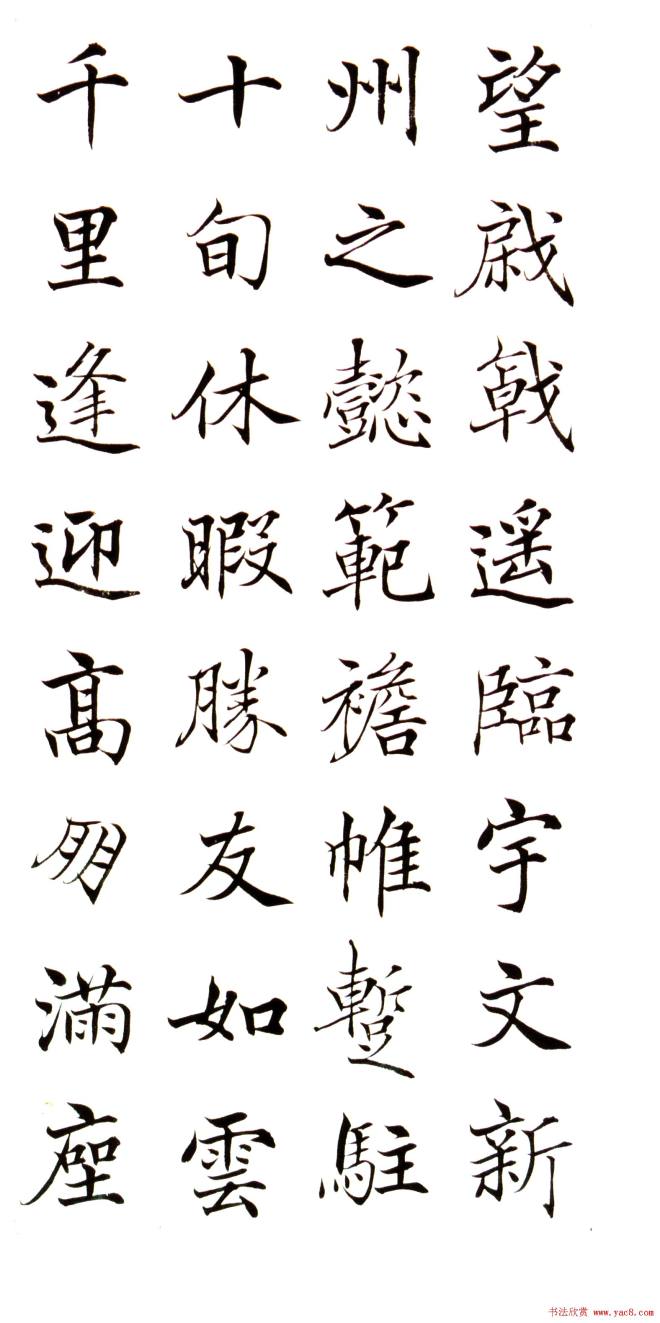 望戚戟遥臨宇文新
州之懿範襜帷蹔駐
十旬休暇勝友如雲
千里逢迎髙朋滿座
书法欣赏 www.yac8.com